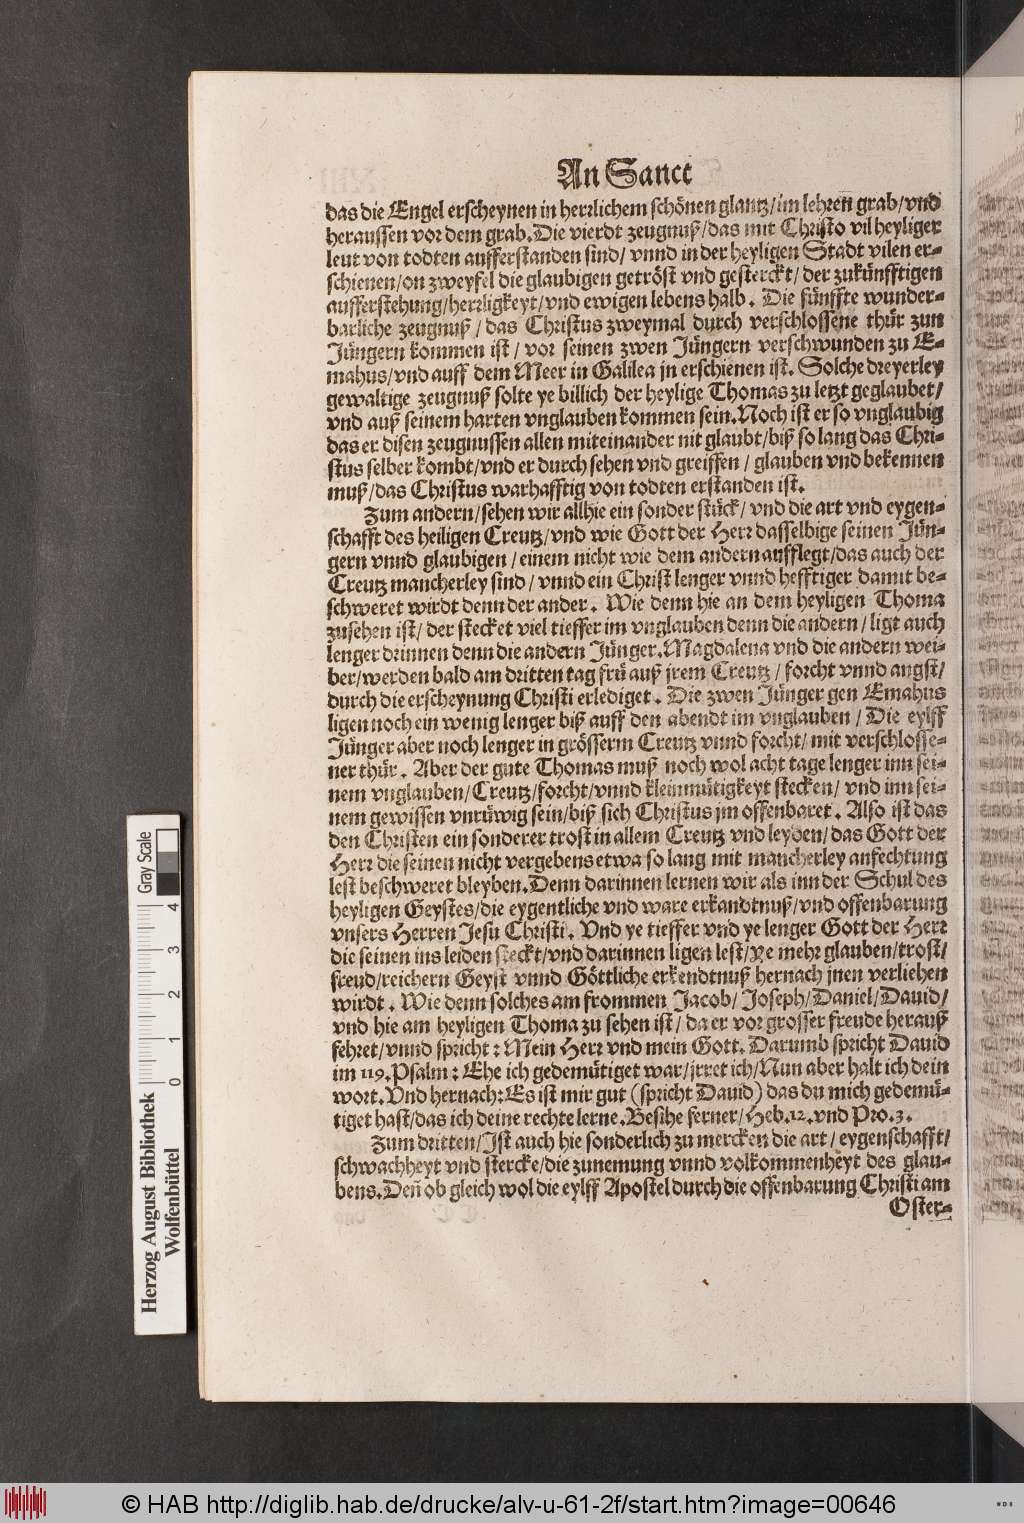 An Sanct
das die Engel erscheynen in herrlichem schönen glantz/im lehren̄ grab/vnd
heraussen vor dem grab.Die vierdt zeugnuß/das mit Christo vil heyliger
leut von todten aufferstanden sind/ vnnd in der heyligen Stadt vilen er-
schienen/on zweyfel die glaubigen getröst vnd gesterckt/ der zukünfftigen
aufferstehung/herrligkeyt/vnd ewigen lebens halb. Die fünffte wunder-
barliche zeugnuß/ das Christus zweymal durch verschlossene thür zun
Jüngern kommen ist/ vor seinen zwen Jüngern verschwunden zu E-
mahus/vnd auff dem Meer in Galilea jn erschienen ist. Solche dreyerley
gewaltige zeugnuß solte ye billich der heylige Thomas zu letzt geglaubet/
vnd auß seinem harten vnglauben kommen sein.Noch ist er so vnglaubig
das er disen zeugnussen allen miteinander nit glaubt/biß so lang das Chri-
stus selber kombt/vnd er durch sehen vnd greiffen/ glauben vnd bekennen
muß/das Christus warhafftig von todten erstanden ist.
Zum andern/sehen wir allhie ein sonder stück/ vnd die art vnd eygen-
schafft des heiligen Creutz/vnd wie Gott der Herr dasselbige seinen Jün-
gern vnnd glaubigen/einem nicht wie dem andern aufflegt/das auch der
Creutz mancherley sind/ vnnd ein Christ lenger vnnd hefftiger damit be-
schweret wirdt denn der ander. Wie denn hie an dem heyligen Thoma
zusehen ist/ der stecket viel tieffer im vnglauben denn die andern/ ligt auch
lenger drinnen denn die andern Jünger.Magdalena vnd die andern wei-
ber/werden bald am dritten tag frü auß jrem Creutz/ forcht vnnd angst/
durch die erscheynung Christi erlediget. Die zwen Jünger gen Emahus
ligen noch ein wenig lenger biß auff den abendt im vnglauben/ Die eylff
Jünger aber noch lenger in grösserm Creutz vnnd forcht/ mit verschlosse-
ner thür. Aber der gute Thomas muß noch wol acht tage lenger inn sei-
nem vnglauben/Creutz/forcht/vnnd kleinmütigkeyt stecken/ vnd inn sei-
nem gewissen vnrüwig sein/biß sich Christus jm offenbaret. Also ist das
den Christen ein sonderer trost in allem Creutz vnd leyden/das Gott der
Herr die seinen nicht vergebens etwa so lang mit mancherley anfechtung
lest beschweret bleyben.Denn darinnen lernen wir als inn der Schul des
heyligen Geystes/die eygentliche vnd ware erkandtnuß/vnd offenbarung
vnsers Herren Jesu Christi. Vnd ye tieffer vnd ye lenger Gott der Herr
die seinen ins leiden steckt/vnd darinnen ligen lest/ye mehr glauben/trost/
freud/reichern Geyst vnnd Göttliche erkendtnuß hernach jnen verliehen
wirdt. Wie denn solches am frommen Jacob/ Joseph/Daniel/Dauid/
vnd hie am heyligen Thoma zu sehen ist/ da er vor grosser freude herauß
fehret/vnnd spricht: Mein Herr vnd mein Gott. Darumb spricht Dauid
im 119.Psalm: Ehe ich gedemütiget war/jrret ich/Nun aber halt ich dein
wort.Vnd hernach:Es ist mir gut (spricht Dauid) das du mich gedemü-
tiget hast/das ich deine rechte lerne.Besihe ferner/Heb.12.vnd Pro.3.
Zum dritten/Ist auch hie sonderlich zu mercken die art/ eygenschafft/
schwachheyt vnd stercke/die zunemung vnnd volkommenheyt des glau-
bens.Deñ ob gleich wol die eylff Apostel durch die offenbarung Christi am
Oster-
Gray Scale
4
3
2
1
0
Herzog August Bibliothek
Wolfenbüttel
© HAB http://diglib.hab.de/drucke/alv-u-61-2f/start.htm?image=00646